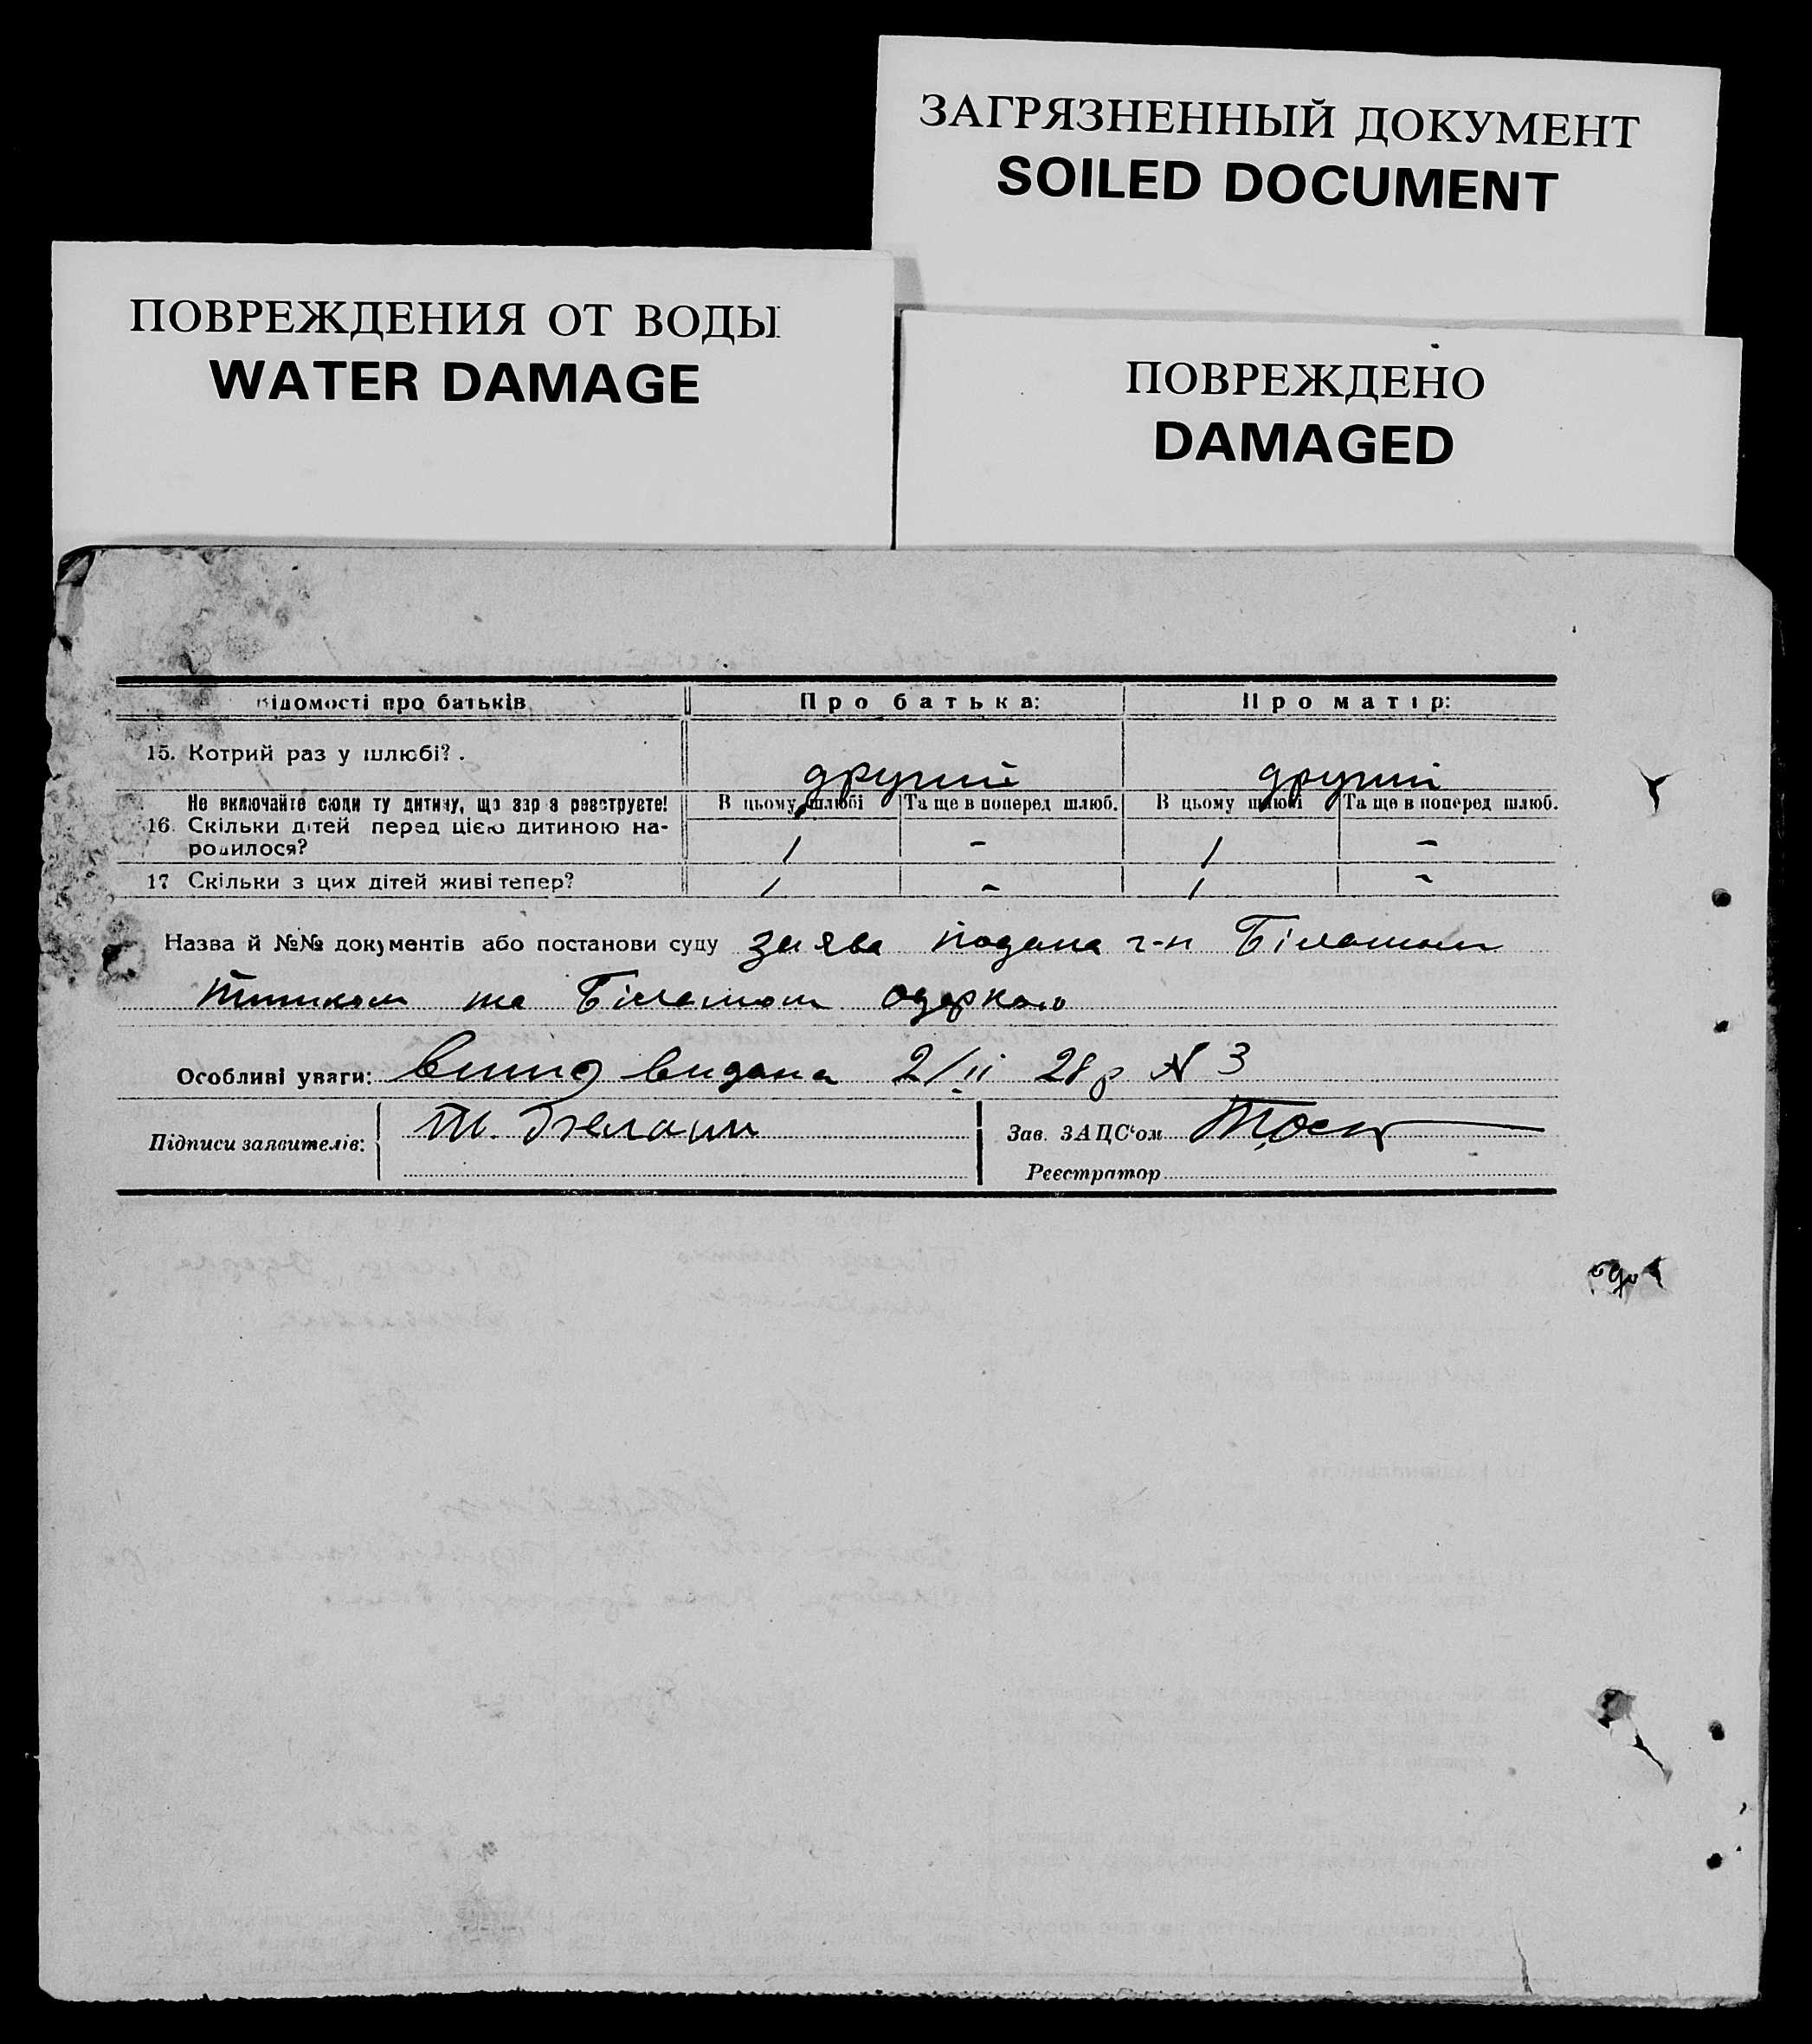 ЗАГРЯЗНЕННЫЙ ДОКУМЕНТ
SOILED DOCUMENT
ПОВРЕЖДЕНИЯ ОТ ВОДЫ
WATER DAMAGE
ПОВРЕЖДЕНО
DAMAGED
Відомості про батьків Про батька: Про матір:
15. Котрий раз у шлюбі? . другий другий
Не включайте сюди ту дитину, що зараз реєструєте! В цьому шлюбі Та ще в поперед шлюб. В цьому шлюбі Та ще в поперед шлюб.
16. Скільки дітей перед цією дитиною на-
родилося? 1 - 1 -
17 Скільки з цих дітей живі тепер? 1 - 1 -
Назва й №№ документів або постанови суду заява подана г-н Білашом
та Білашом
Особливі уваги: видана 2/II 28 р № 3
Підписи заявителів:
Зав. ЗАЦС'ом
Реєстратор